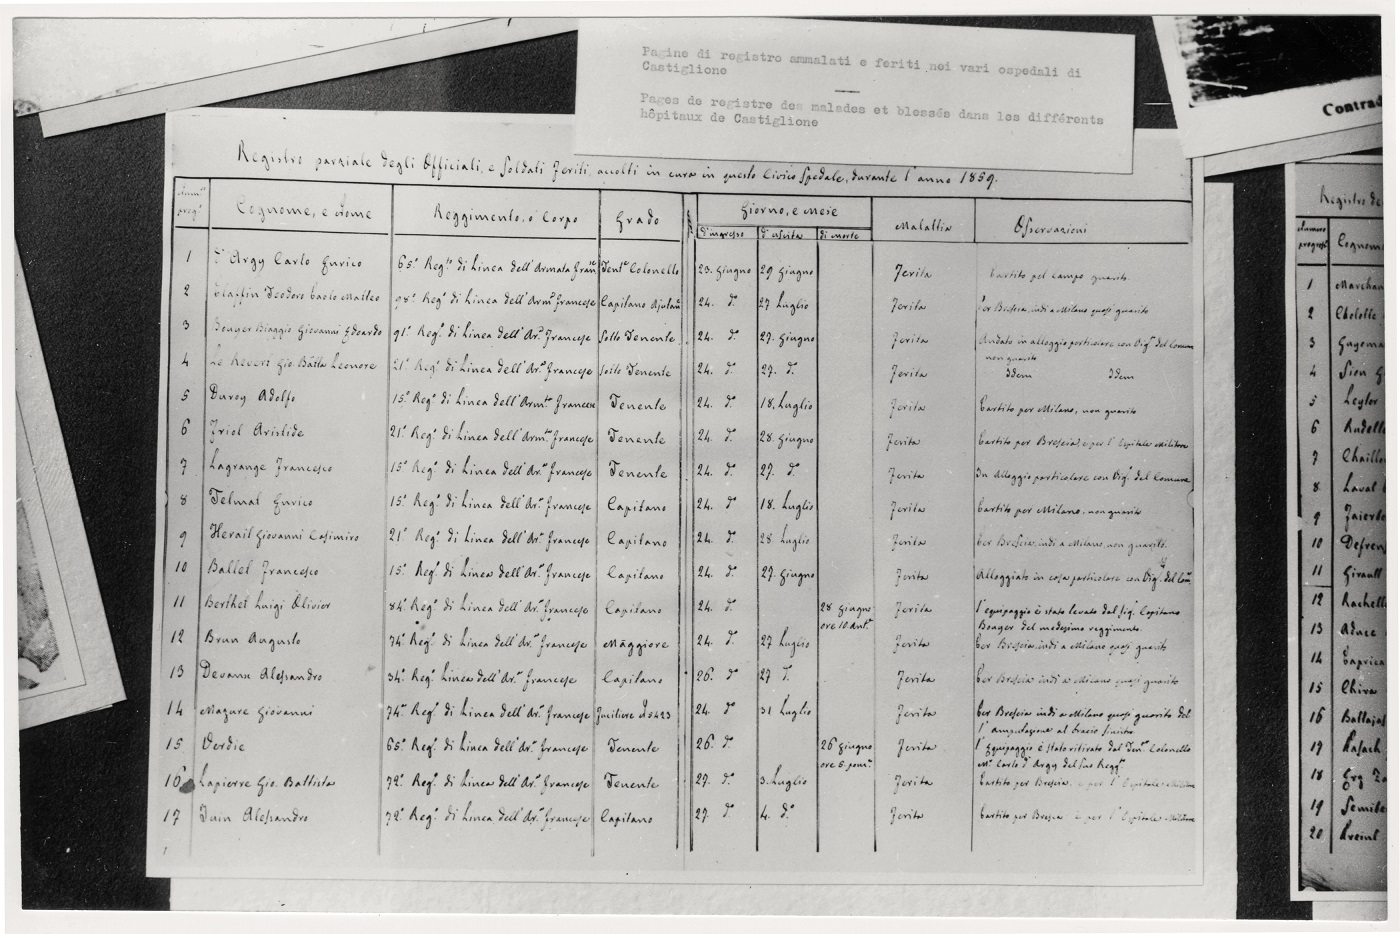 Pagine di registro ammalati e feriti nei vari ospedali di
Castiglione
Pages de registre des malades et blessés dans les différents
hôpitaux de Castiglione
Contrad
Registro parziale degli Officiali, e Soldati feriti, accolti in cura in questo Civico Spedale, durante l'anno 1859.
Num.° prog.° Cognome, e Nome Reggimento, o Corpo Grado Giorno, e Mese Malattia Osservazioni
d'ingresso d'uscita di morte
1 D'Argy Carlo Enrico 65.° Reg.to di Linea dell'Armata Franc.e Ten.te Colonello 23. Giugno 29 Giugno Ferita Partito pel campo guarito.
2 Teodoro Paolo Matteo 98.° Reg.° di Linea dell'Arm.a Francese Capitano Ajutan 24. d.° 27 Luglio Ferita Per Brescia, indi a Milano quasi guarito
3 Bouger Biaggio Giovanni Edoardo 91.° Reg.° di Linea dell'Ar.a Francese Sotto Tenente 24. d.° 27. Giugno Ferita Andato in alloggio particolare con Vig.° del Comun
non guarito
4 Le Gio. Batta Leonore 21.° Reg.° di Linea dell'Ar.a Francese Sotto Tenente 24. d.° 27. d.° Ferita Idem Idem
5 Duroy Adolfo 15.° Reg.° di Linea dell'Arm.ta Francese Tenente 24. d.° 18. Luglio Ferita Partito per Milano, non guarito
6 Friol Aristide 21.° Reg.° di Linea dell'Arm.ta Francese Tenente 24. d.° 28. Giugno Ferita Partito per Brescia, e per l'Ospitale Militare
7 Lagrange Francesco 15.° Reg.° di Linea dell'Ar.a Francese Tenente 24. d.° 27. d.° Ferita In Alloggio particolare con Vig.° del Comune
8 Telmat Enrico 15.° Reg.° di Linea dell'Ar.a Francese Capitano 24. d.° 18. Luglio Ferita Partito per Milano, non guarito
9 Herail Giovanni Casimiro 21.° Reg.° di Linea dell'Ar.a Francese Capitano 24. d.° 28 Luglio Ferita Per Brescia, indi a Milano, non guarito.
10 Ballet Francesco 15.° Reg.° di Linea dell'Ar.a Francese Capitano 24. d.° 27. Giugno Ferita Alloggiato in casa particolare con Vig.° del Com
11 Berthet Luigi Olivier 84.° Reg.° di Linea dell'Ar.a Francese Capitano 24. d.° 28 Giugno Ferita L'equipaggio è stato levato dal Sig.r Capitano
ore 10 ant.e Bouger del medesimo reggimento.
12 Brun Augusto 74.° Reg.° di Linea dell'Ar.a Francese Maggiore 24. d.° 27 Luglio Ferita Per Brescia, indi a Milano quasi guarito
13 Devaux Alessandro 34.° Reg.° Linea dell'Ar.a Francese Capitano 26. d.° 27 d. Ferita Per Brescia indi a Milano quasi guarito
14 Mazure Giovanni 74.° Reg.° di Linea dell'Ar.a Francese Fuciliere N 2423 24. d.° 31 Luglio Ferita Per Brescia indi a Milano quasi guarito del
l'amputazione al braccio sinistro
15 Verdie 65.° Reg.° di Linea dell'Ar.a Francese Tenente 26. d.° 26 Giugno Ferita L'Equipaggio è stato ritirato dal Ten.te Colonello
ore 6 pom.e M.r Carlo d'Argy del suo Regg.°
16 Lapierre Gio. Battista 72.° Reg.° di Linea dell'Ar.a Francese Tenente 27. d.° 3. Luglio Ferita Partito per Brescia, e per l'Ospitale Militare
17 Juin Alessandro 72.° Reg.° di Linea dell'Ar.a Francese Capitano 27. d.° 4. d.° Ferita Partito per Brescia e per l'Ospitale Militare
Registro de
Numero progress. Cognome
1 Marchan
2 Cholotte
3 Guyoma
4 Sion G
5 Leyler
6 Rudolf
7 Chaill
8 Laval
9
10 Defren
11 Girault
12 Rachel
13 Aduce
14 Caprica
15 Chiva
16 Battajas
17
18
19
20